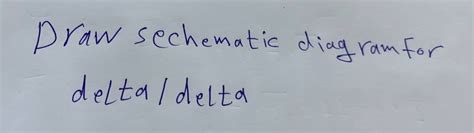 Draw sechematic diagram for
delta / delta